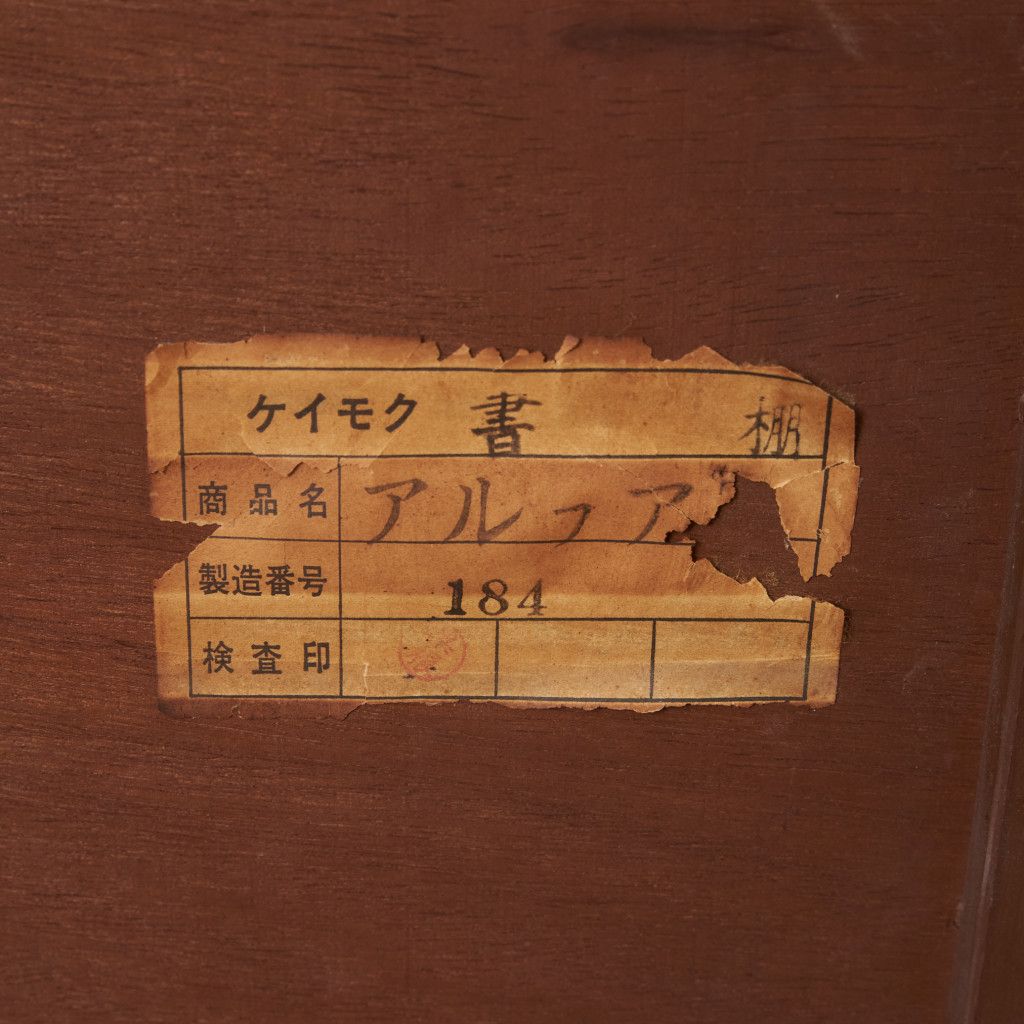 ケイモク 書 棚
商品名 アルファ
製造番号 184
検査印